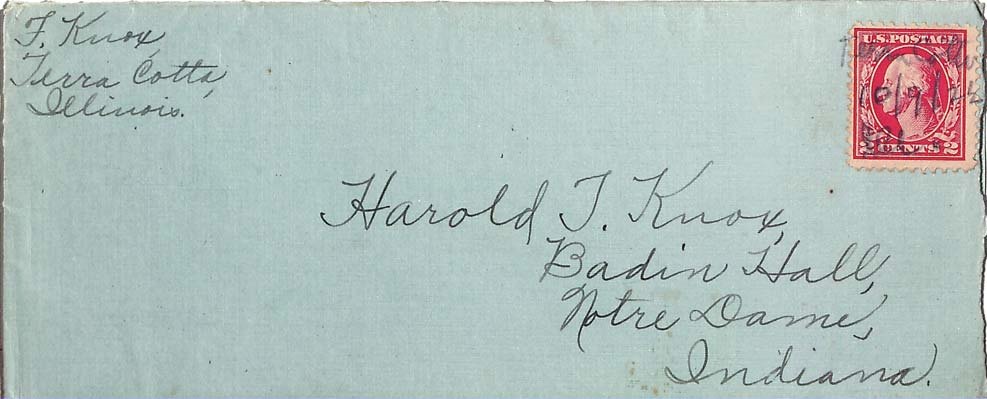 F. Knox,
Terra Cotta,
Illinois.
U.S. POSTAGE
10/9/22
2 CENTS 2
Harold T. Knox,
Badin Hall,
Notre Dame,
Indiana.